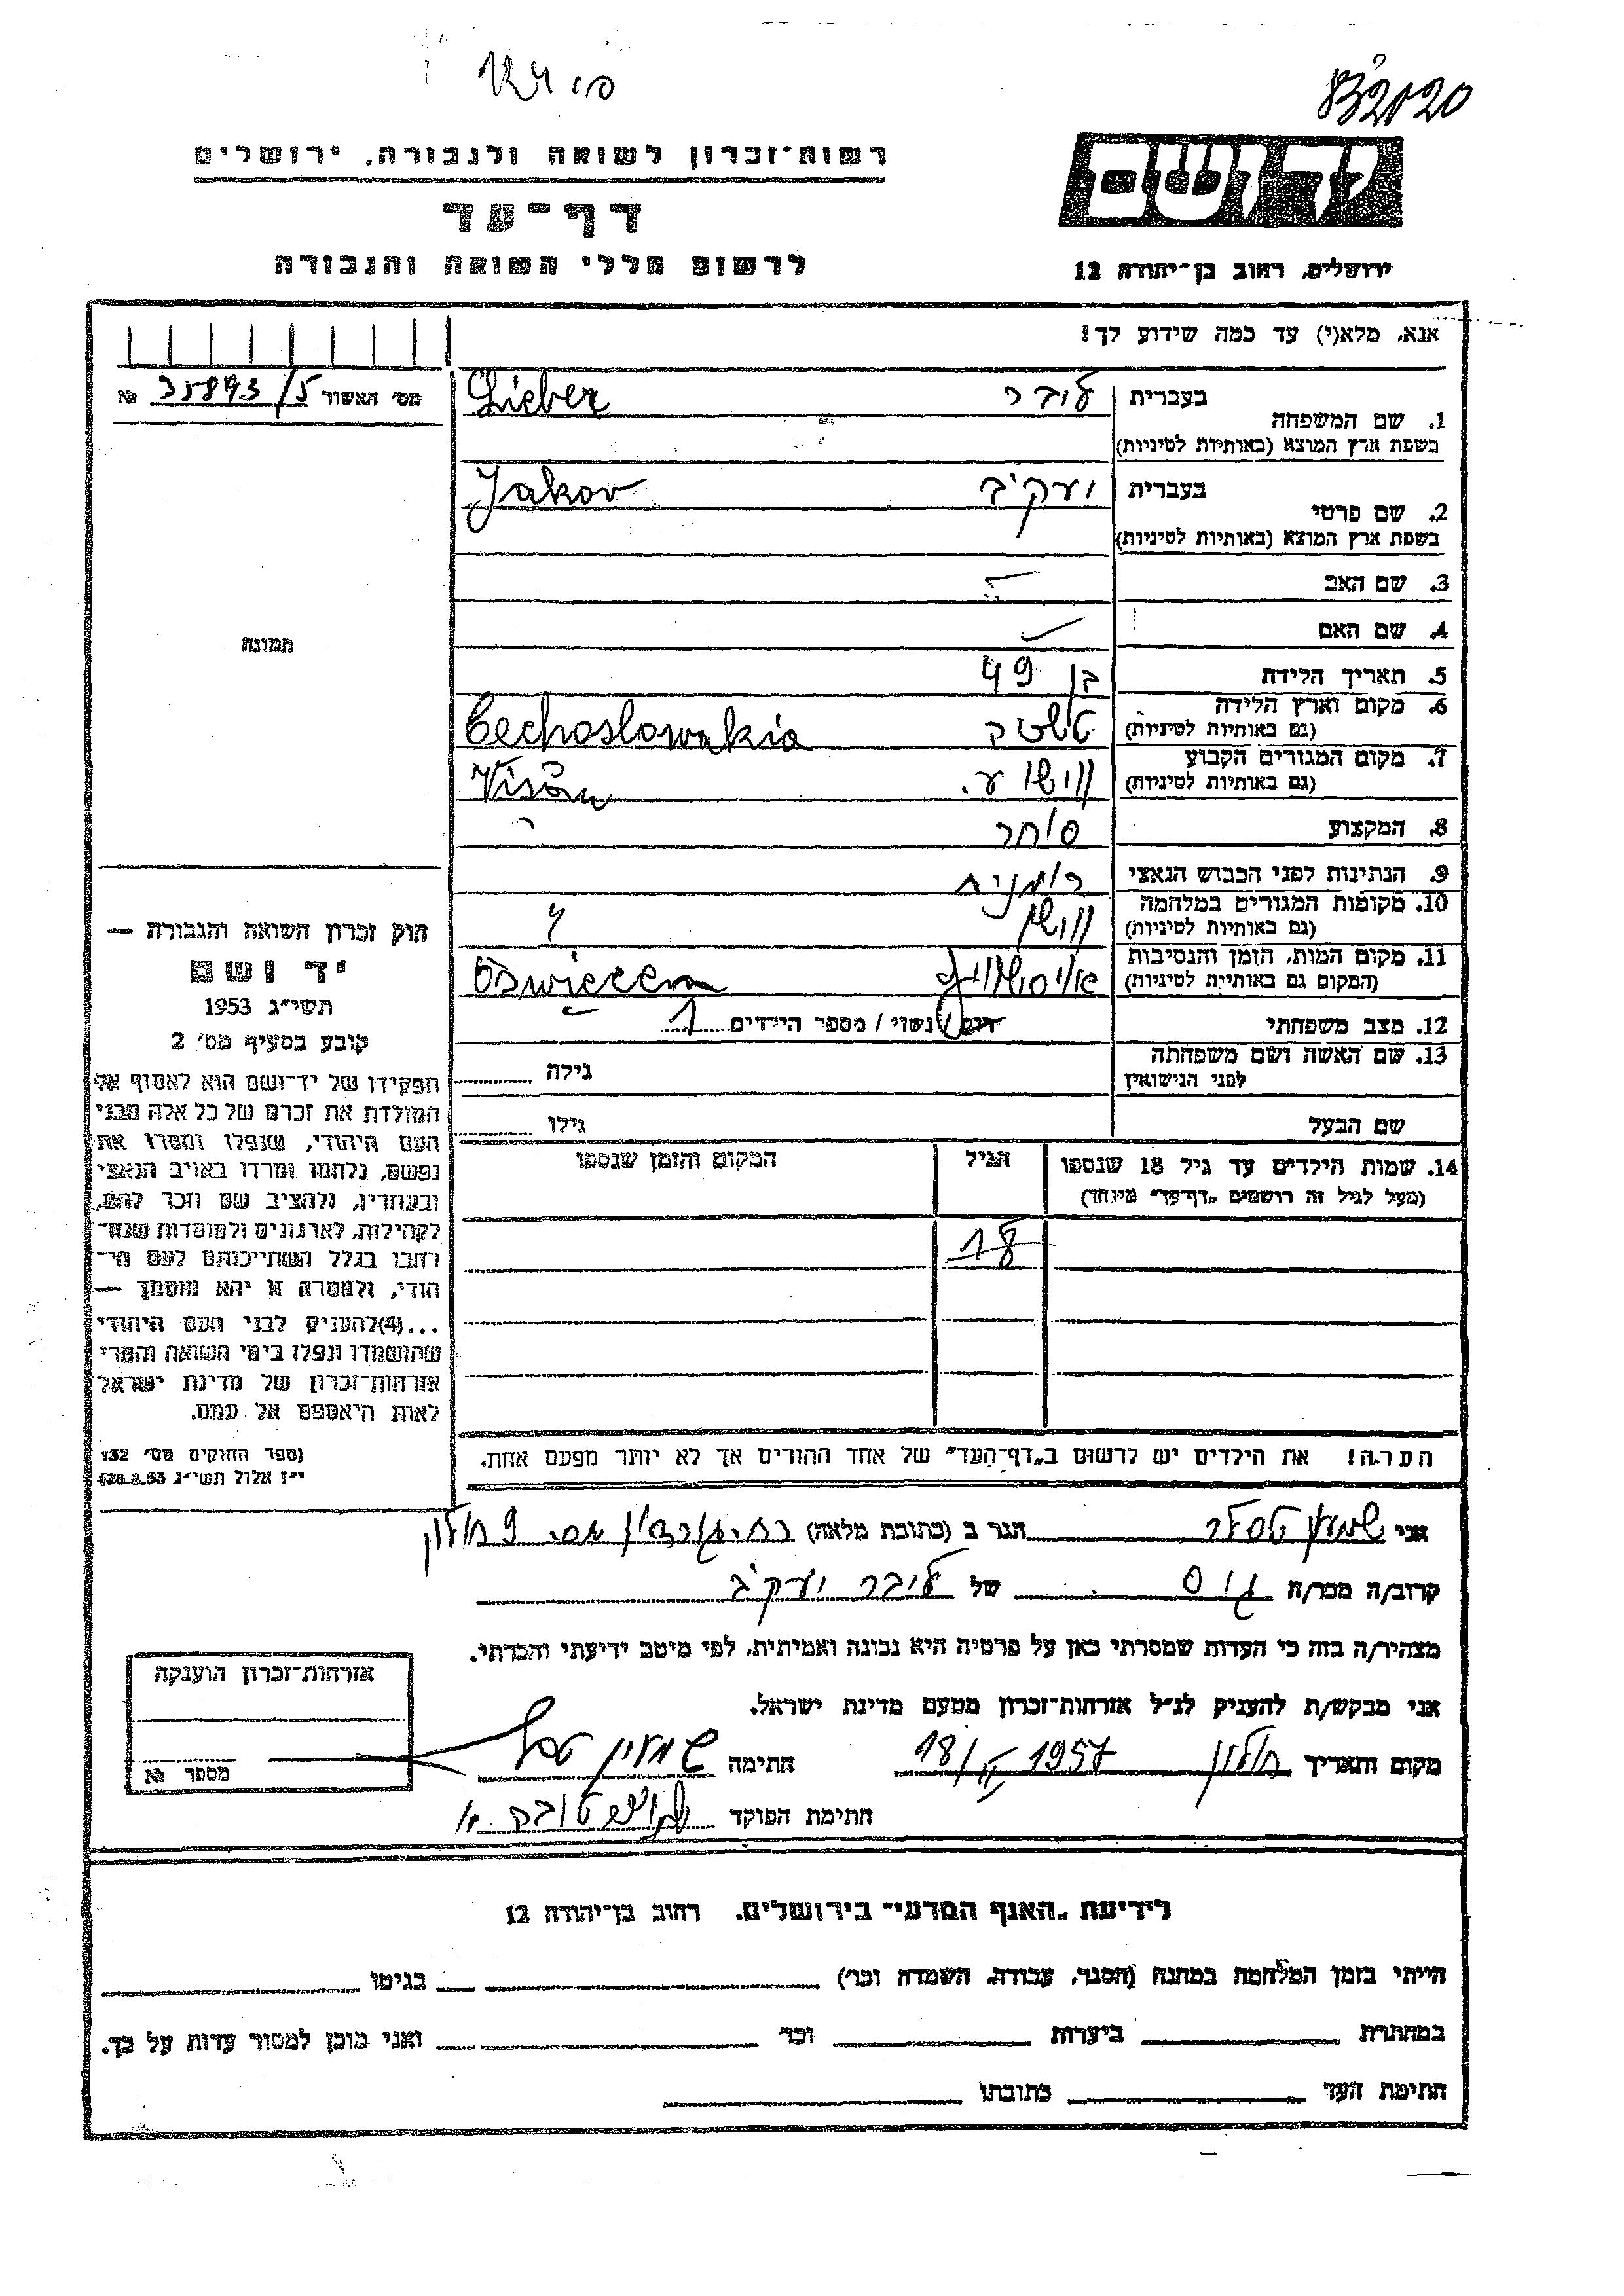 832020
רשות-זכרון לשואה ולגבורה, ירושלים
דף-עד
לרשום חללי השואה והגבורה
ידושם
ירושלים, רחוב בן-יהודה 12
אנא, מלא(י) עד כמה שידוע לך!
מס' האשור 35893/5 №
תמונה
1. שם המשפחה
בעברית ליבר Lieber
בשפת ארץ המוצא (באותיות לטיניות)
2. שם פרטי
בעברית יעקב Jakov
בשפת ארץ המוצא (באותיות לטיניות)
3. שם האב
4. שם האם
5. תאריך הלידה בן 49
6. מקום וארץ הלידה Cechoslowakia
(גם באותיות לטיניות)
7. מקום המגורים הקבוע
(גם באותיות לטיניות)
8. המקצוע סוחר
9. הנתינות לפני הכבוש הנאצי רומנית
10. מקומות המגורים במלחמה
(גם באותיות לטיניות)
11. מקום המות, הזמן והנסיבות Oswiecem
(המקום גם באותיות לטיניות)
12. מצב משפחתי רוק/נשוי / מספר הילדים 1
13. שם האשה ושם משפחתה גילה
לפני הנישואין
שם הבעל גילו
14. שמות הילדים עד גיל 18 שנספו הגיל המקום והזמן שנספו
(מעל לגיל זה רושמים "דף-עד" מיוחד)
18
הערה! את הילדים יש לרשום ב"דף-העד" של אחד ההורים אך לא יותר מפעם אחת.
חוק זכרון השואה והגבורה —
יד ושם
תשי"ג 1953
קובע בסעיף מס' 2
תפקידו של יד-ושם הוא לאסוף אל
המולדת את זכרם של כל אלה מבני
העם היהודי, שנפלו ומסרו את
נפשם, נלחמו ומרדו באויב הנאצי
ובעוזריו, ולהציב שם וזכר להם,
לקהילות, לארגונים ולמוסדות שנח-
רחבו בגלל השתייכותם לעם הי-
הודי, ולמטרה זו יהא מוסמך —
...(4)להעניק לבני העם היהודי
שהושמדו ונפלו בימי השואה והמרי
אזרחות-זכרון של מדינת ישראל
לאות היאספם אל עמם.
(ספר החוקים מס' 132
י"ז אלול תשי"ג 28.8.53)
אני שמעון הגר ב (כתובת מלאה) מס. 9 חולון
קרוב/ה מכר/ה גיס של ליבר יעקב
מצהיר/ה בזה כי העדות שמסרתי כאן על פרטיה היא נכונה ואמיתית, לפי מיטב ידיעתי והכרתי.
אני מבקש/ת להעניק לנ"ל אזרחות-זכרון מטעם מדינת ישראל.
מקום ותאריך חולון 1957 חתימה שמעון
חתימת הפוקד
אזרחות-זכרון הוענקה
מספר №
לידיעת "האגף המדעי" בירושלים, רחוב בן-יהודה 12
הייתי בזמן המלחמה במחנה (הסגר, עבודה, השמדה וכו') בגיטו
במחתרת ביערות וכו' ואני מוכן למסור עדות על כך.
חתימת העד כתובתו